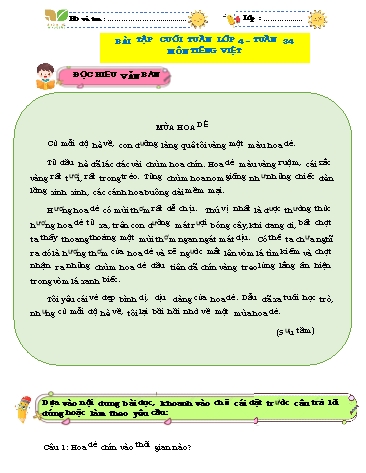 Họ và tên: ............................ Lớp: ................
BÀI TẬP CUỐI TUẦN LỚP 4 – TUẦN 34
MÔN TIẾNG VIỆT
ĐỌC HIỂU VĂN BẢN
MÙA HOA DẺ
Cứ mỗi độ hè về, con đường làng quê tôi vàng một màu hoa dẻ.
Từ đầu hè đã lác đác vài chùm hoa chín. Hoa dẻ màu vàng ruộm, cái sắc
vàng rất tươi, rất trong trẻo. Từng chùm hoa nom giống như những chiếc đèn
lồng xinh xinh, các cánh hoa buông dài mềm mại.
Hương hoa dẻ có mùi thơm rất dễ chịu. Thú vị nhất là được thưởng thức
hương hoa dẻ từ xa, trên con đường mát rượi bóng cây, khi đang đi, bất chợt
ta thấy thoang thoảng một mùi thơm ngan ngát mát dịu. Có thể ta chưa nghĩ
ra đó là hương thơm của hoa dẻ và sẽ ngước mắt lên vòm lá tìm kiếm và chợt
nhận ra những chùm hoa dẻ đầu tiên đã chín vàng treo lủng lẳng ẩn hiện
trong vòm lá xanh biếc.
Tôi yêu cái vẻ đẹp bình dị, dịu dàng của hoa dẻ. Dẫu đã xa tuổi học trò,
nhưng cứ mỗi độ hè về, tôi lại bồi hồi nhớ về một mùa hoa dẻ.
(Sưu tầm)
Dựa vào nội dung bài đọc, khoanh vào chữ cái đặt trước câu trả lời
đúng hoặc làm theo yêu cầu:
Câu 1: Hoa dẻ chín vào thời gian nào?